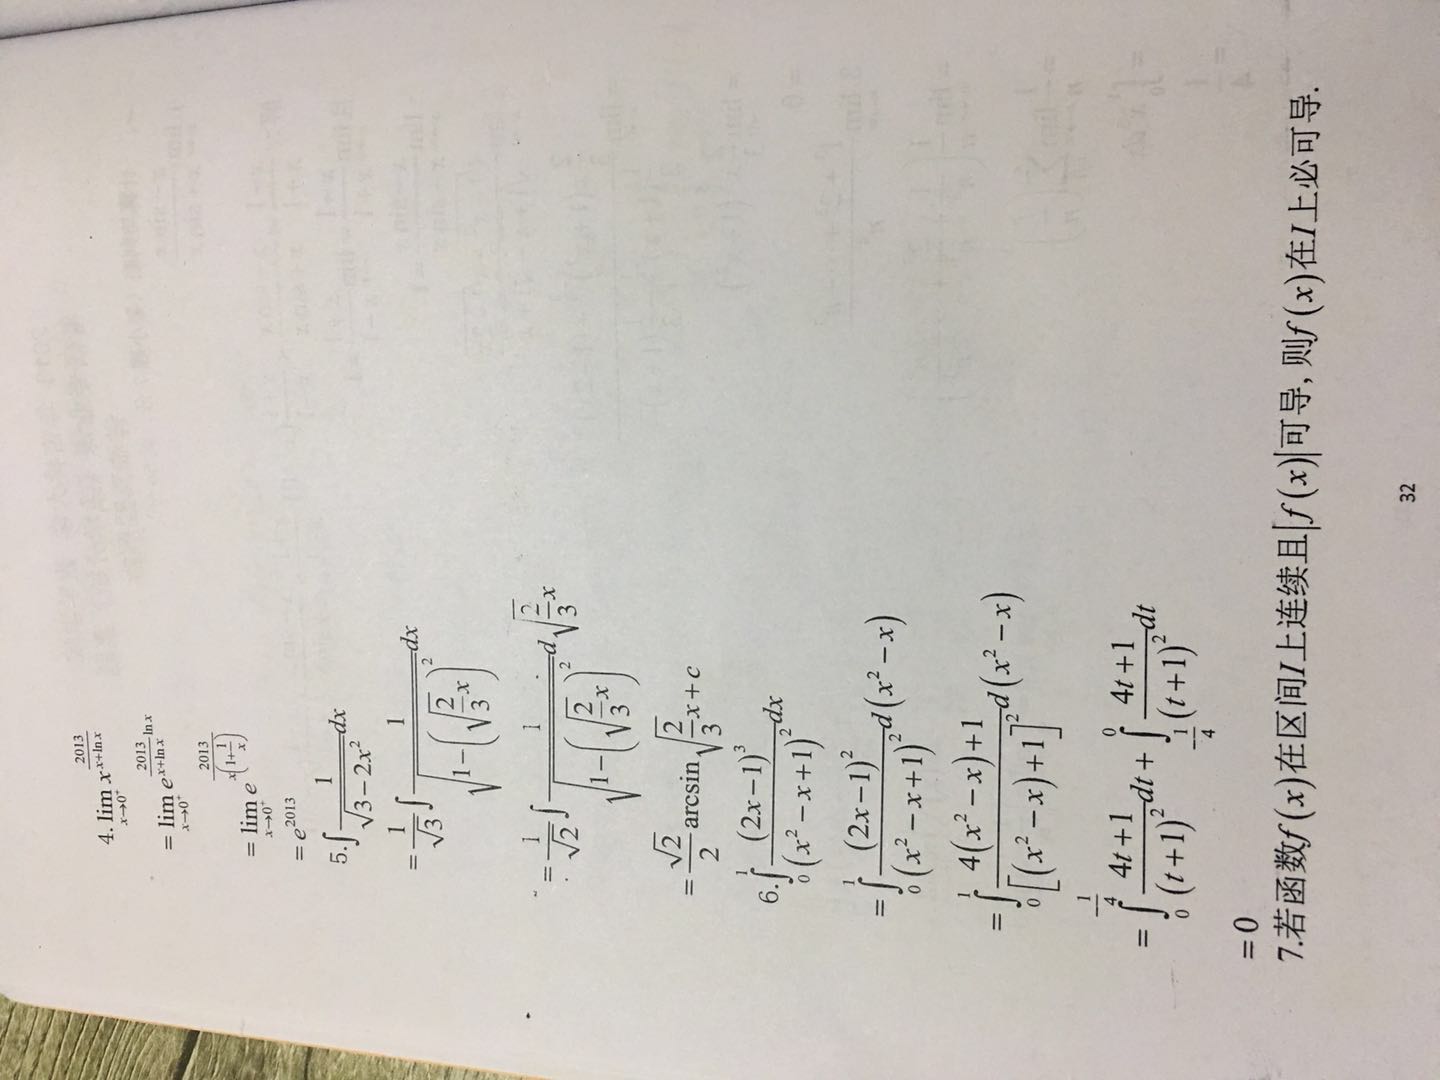 4. \lim_{x→0^+} x^{\frac{2013}{x+\ln x}}
= \lim_{x→0^+} e^{\frac{2013}{x+\ln x}\ln x}
= \lim_{x→0^+} e^{\frac{2013}{x\left(1+\frac{1}{x}\right)}}
= e^{2013}
5. ∫\frac{1}{\sqrt{3-2x^2}}dx
= \frac{1}{\sqrt{3}}∫\frac{1}{\sqrt{1-\left(\sqrt{\frac{2}{3}}x\right)^2}}dx
= \frac{1}{\sqrt{2}}∫\frac{1}{\sqrt{1-\left(\sqrt{\frac{2}{3}}x\right)^2}}d\sqrt{\frac{2}{3}}x
= \frac{\sqrt{2}}{2}\arcsin\sqrt{\frac{2}{3}}x+c
6. ∫_0^1\frac{(2x-1)^3}{(x^2-x+1)^2}dx
= ∫_0^1\frac{(2x-1)^2}{(x^2-x+1)^2}d(x^2-x)
= ∫_0^1\frac{4(x^2-x)+1}{[(x^2-x)+1]^2}d(x^2-x)
= ∫_0^{-\frac{1}{4}}\frac{4t+1}{(t+1)^2}dt+∫_{-\frac{1}{4}}^0\frac{4t+1}{(t+1)^2}dt
= 0
7.若函数f(x)在区间I上连续且|f(x)|可导,则f(x)在I上必可导.
32